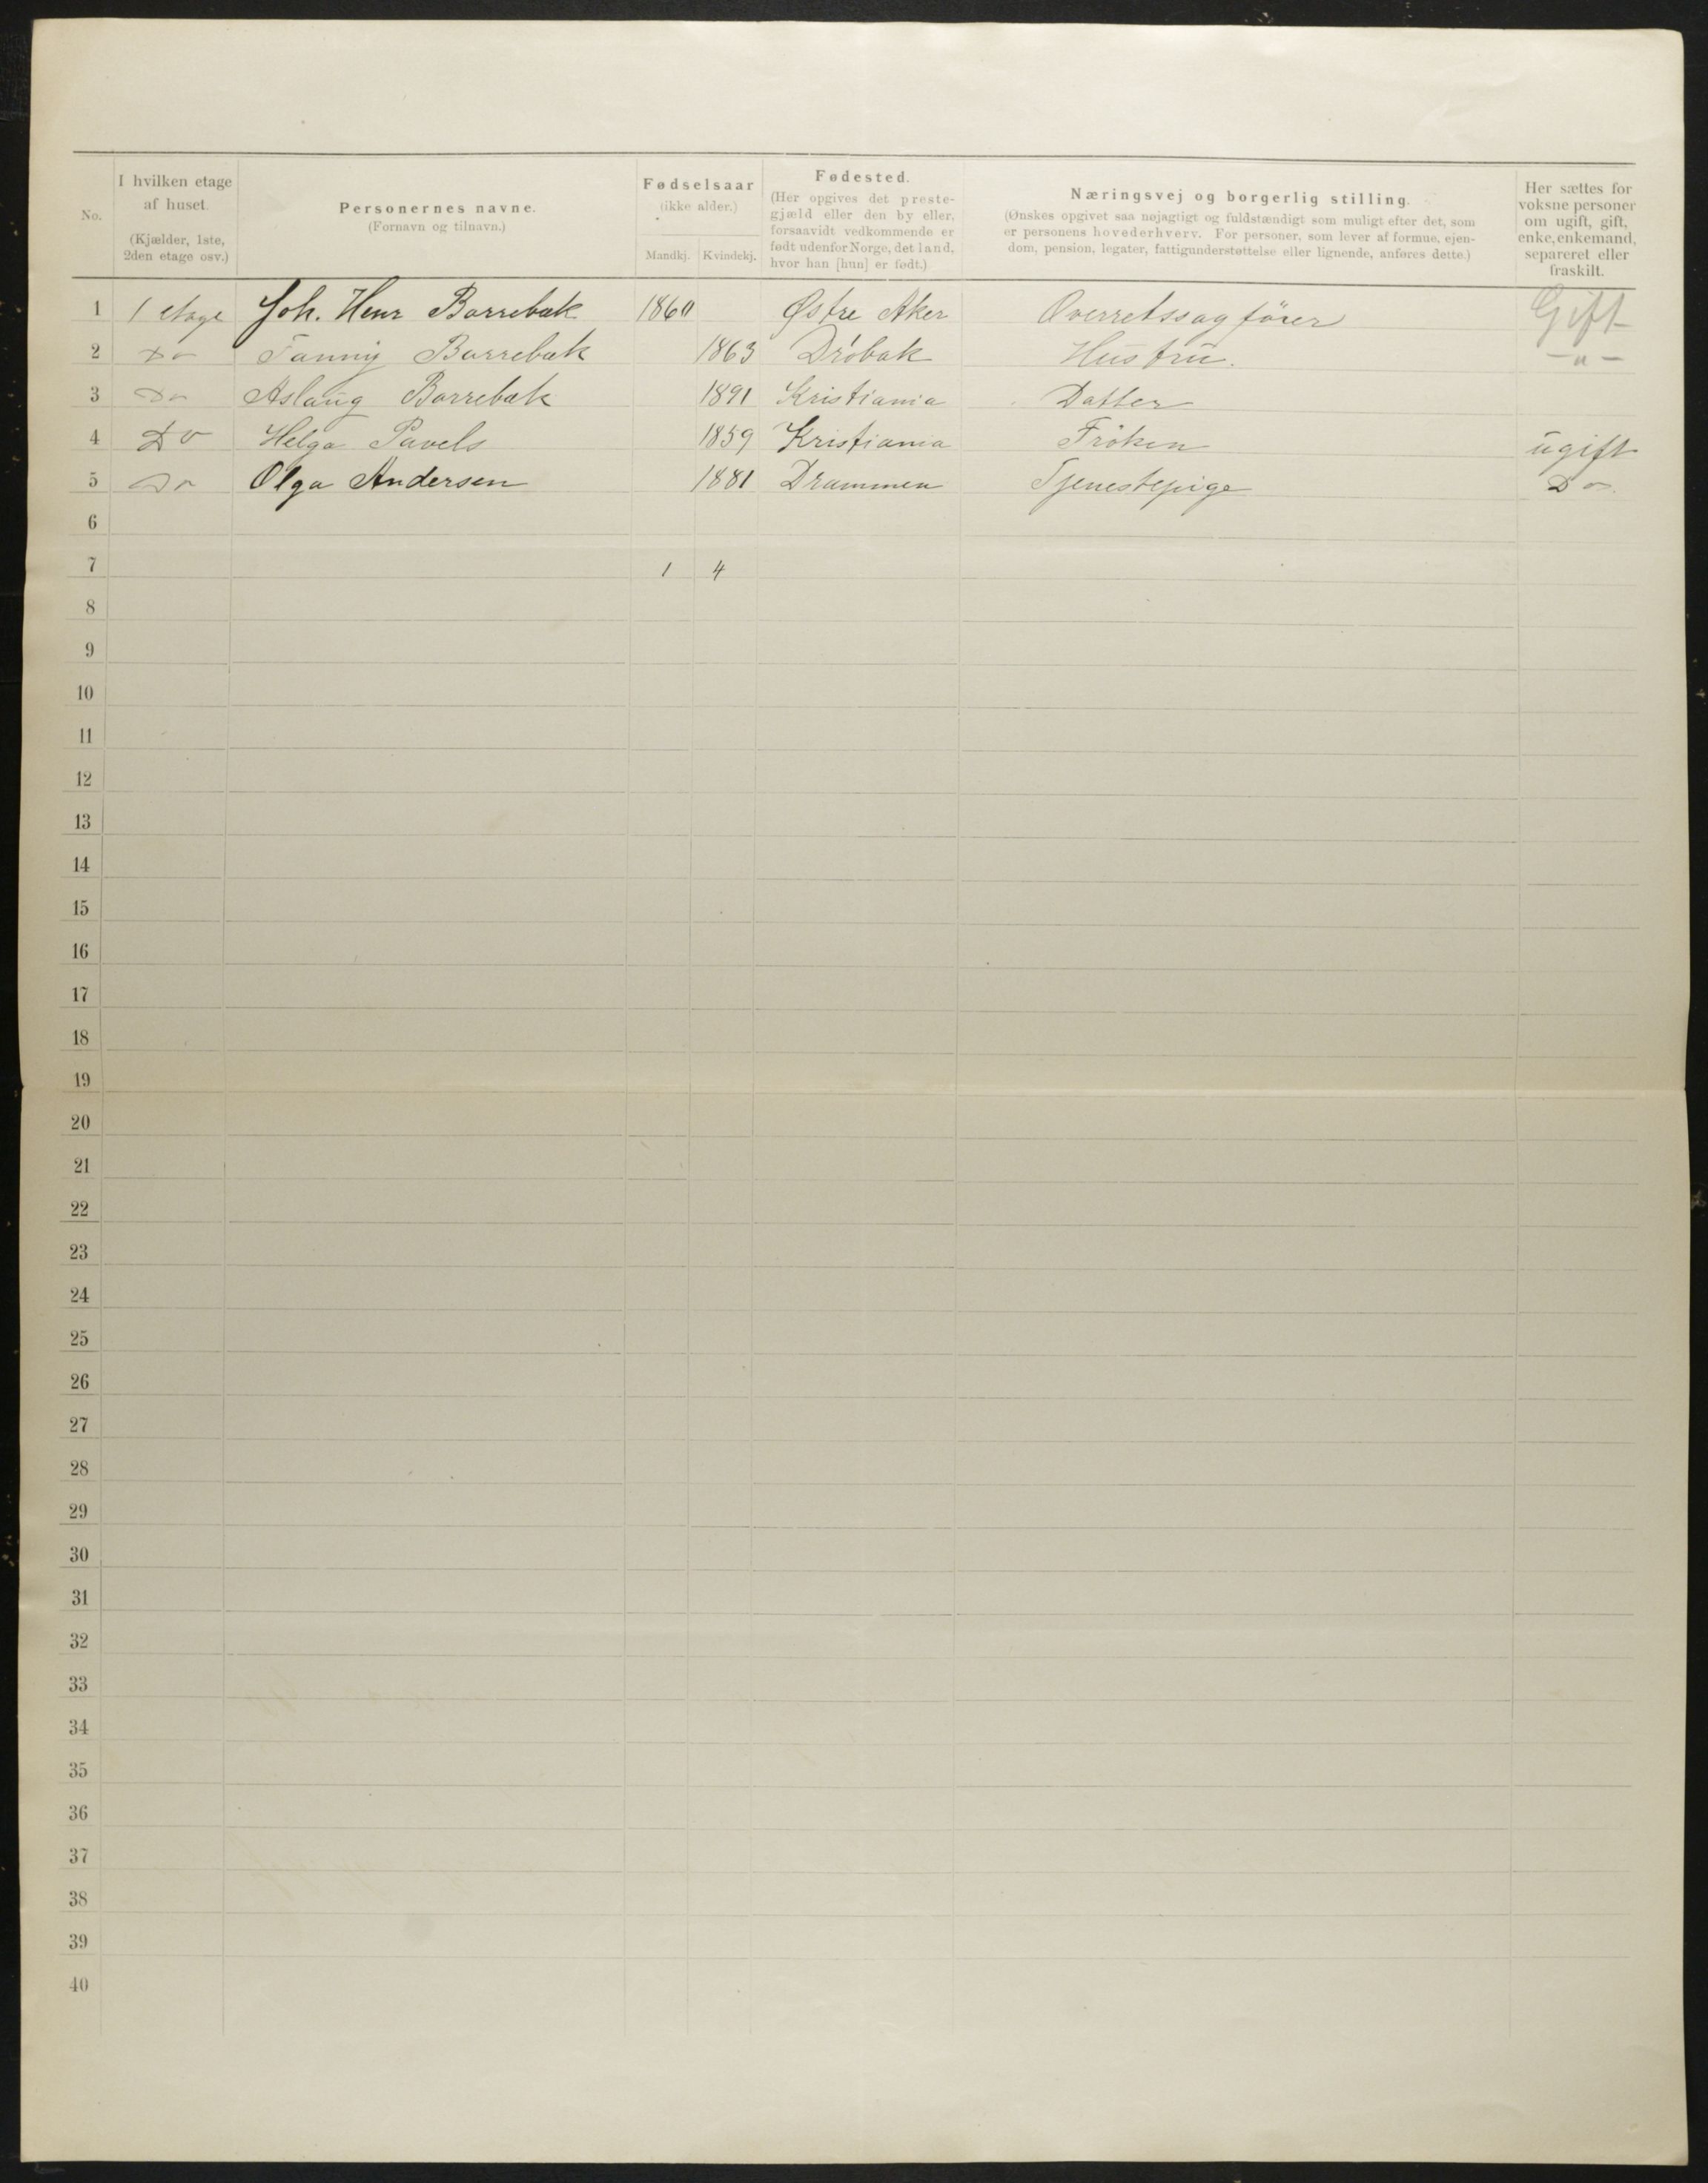 No. | I hvilken etage af huset. (Kjælder, 1ste, 2den etage osv.) | Personernes navne. (Fornavn og tilnavn.) | Fødselsaar (ikke alder.) Mandkj. | Kvindekj. | Fødested. (Her opgives det prestegjæld eller den by eller, forsaavidt vedkommende er født udenfor Norge, det land, hvor han [hun] er født.) | Næringsvej og borgerlig stilling. (Ønskes opgivet saa nøjagtigt og fuldstændigt som muligt efter det, som er personens hovederhverv. For personer, som lever af formue, ejendom, pension, legater, fattigunderstøttelse eller lignende, anføres dette.) | Her sættes for voksne personer om ugift, gift, enke, enkemand, separeret eller fraskilt.
1 1 etage Joh. Henr Barrebæk 1860 Østre Aker Overretssagfører Gift
2 Do Fanny Barrebæk 1863 Drøbak Hustru. -"-
3 Do Aslaug Barrebæk 1891 Kristiania Datter
4 Do Helga Pavels 1859 Kristiania Frøken ugift
5 Do Olga Andersen 1881 Drammen Tjenestepige Do
6
7 1 4
8
9
10
11
12
13
14
15
16
17
18
19
20
21
22
23
24
25
26
27
28
29
30
31
32
33
34
35
36
37
38
39
40